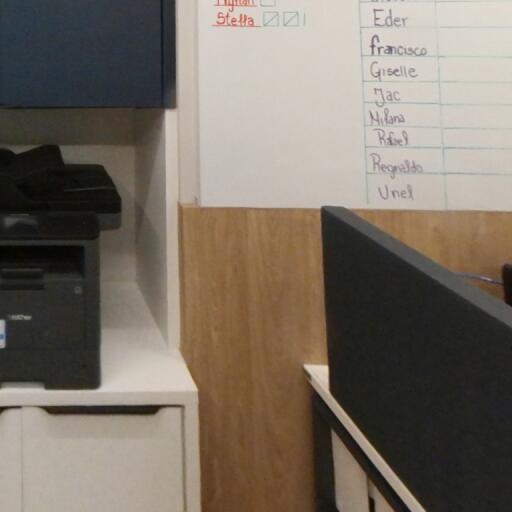 Stella
Eder
Francisco
Giselle
Jac
Milana
Rafael
Reginaldo
Uriel
brother